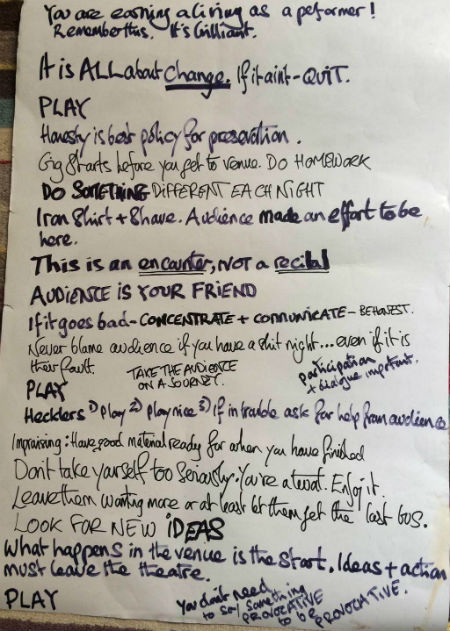 You are earning a living as a peformer!
Remember this. It's brilliant.
It is ALL about change. If it aint - QUIT.
PLAY
Honesty is best policy for preservation.
Gig starts before you get to venue. DO HOMEWORK
DO SOMETHING DIFFERENT EACH NIGHT
Iron Shirt + Shave. Audience made an effort to be
here.
This is an encounter, NOT a recital
AUDIENCE IS YOUR FRIEND
If it goes bad - CONCENTRATE + COMMUNICATE - BE HONEST.
Never blame audience if you have a shit night... even if it is
their fault.
TAKE THE AUDIENCE
ON A JOURNEY.
participation
+ dialogue important.
PLAY
Hecklers 1) play 2) play nice 3) if in trouble ask for help from audience
Improvising: Have good material ready for when you have finished
Don't take yourself too seriously. You're a twat. Enjoy it.
Leave them wanting more or at least let them get the last bus.
LOOK FOR NEW IDEAS
What happens in the venue is the start. Ideas + action
must leave the theatre.
PLAY
You don't need
to say something
PROVOCATIVE
to be PROVOCATIVE.